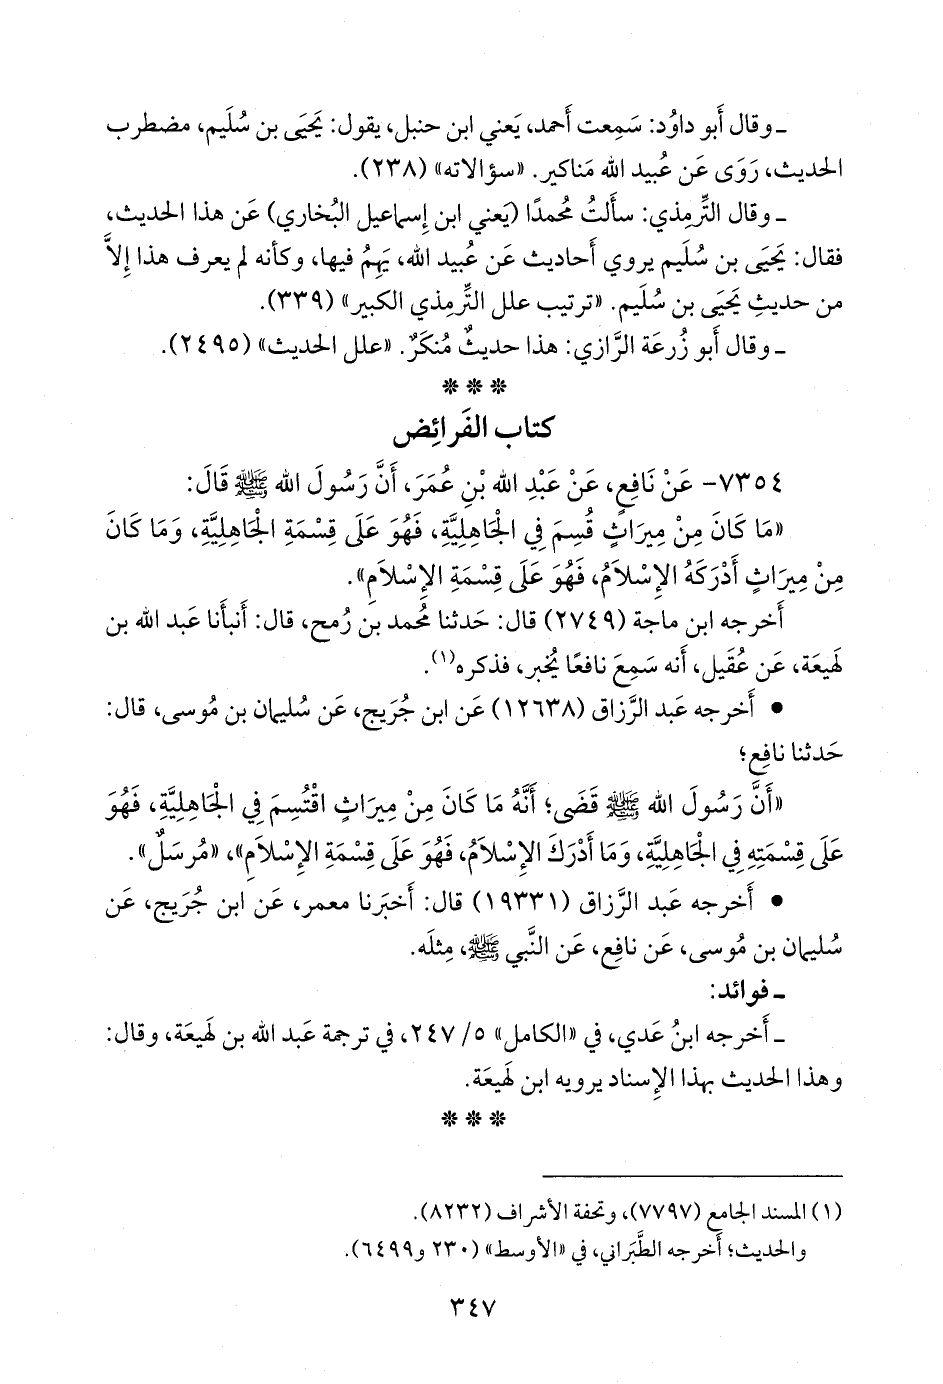 ـ وقال أَبو داوُد: سَمِعت أَحمد، يَعني ابن حنبل، يقول: يَحيَى بن سُلَيم، مضطرب
الحديث، رَوَى عَن عُبيد الله مَناكير. «سؤالاته» (٢٣٨).
ـ وقال التِّرمِذي: سأَلتُ مُحمدًا (يَعني ابن إِسماعيل البُخاري) عَن هذا الحديث،
فقال: يَحيَى بن سُلَيم يروي أَحاديث عَن عُبيد الله، يَهِمُ فيها، وكأنه لم يعرف هذا إِلاَّ
من حديثِ يَحيَى بن سُلَيم. «ترتيب علل التِّرمذي الكبير» (٣٣٩).
ـ وقال أَبو زُرعَة الرَّازي: هذا حديثٌ مُنكَرٌ. «علل الحديث» (٢٤٩٥).
* * *
كتاب الفَرائِض
٧٣٥٤- عَنْ نَافِعٍ، عَنْ عَبْدِ الله بْنِ عُمَرَ، أَنَّ رَسُولَ الله ﷺ قَالَ:
«مَا كَانَ مِنْ مِيرَاثٍ قُسِمَ فِي الْجَاهِلِيَّةِ، فَهُوَ عَلَى قِسْمَةِ الْجَاهِلِيَّةِ، وَمَا كَانَ
مِنْ مِيرَاثٍ أَدْرَكَهُ الإِسْلاَمُ، فَهُوَ عَلَى قِسْمَةِ الإِسْلاَمِ».
أَخرجه ابن ماجة (٢٧٤٩) قال: حَدثنا مُحمد بن رُمح، قال: أَنبأَنا عَبد الله بن
لَهِيعَة، عَن عُقَيل، أَنه سَمِعَ نافعًا يُخبر، فذكره(١).
• أَخرجه عَبد الرَّزاق (١٢٦٣٨) عَن ابن جُرَيج، عَن سُليمان بن مُوسى، قال:
حَدثنا نافِع؛
«أَنَّ رَسُولَ الله ﷺ قَضَى؛ أَنَّهُ مَا كَانَ مِنْ مِيرَاثٍ اقْتُسِمَ فِي الْجَاهِلِيَّةِ، فَهُوَ
عَلَى قِسْمَتِهِ فِي الْجَاهِلِيَّةِ، وَمَا أَدْرَكَ الإِسْلاَمُ، فَهُوَ عَلَى قِسْمَةِ الإِسْلاَمِ»، «مُرسَلٌ».
• أَخرجه عَبد الرَّزاق (١٩٣٣١) قال: أَخبَرنا معمر، عَن ابن جُرَيج، عَن
سُليمان بن مُوسى، عَن نافِع، عَن النَّبي ﷺ، مِثلَه.
ـ فوائد:
ـ أَخرجه ابنُ عَدي، في «الكامل» ٥/ ٢٤٧، في ترجمة عَبد الله بن لَهِيعَة، وقال:
وهذا الحديث بهذا الإِسناد يرويه ابن لَهِيعَة.
* * *
(١) المسند الجامع (٧٧٩٧)، وتحفة الأشراف (٨٢٣٢).
والحديث؛ أَخرجه الطَّبَراني، في «الأوسط» (٢٣٠ و٦٤٩٩).
٣٤٧